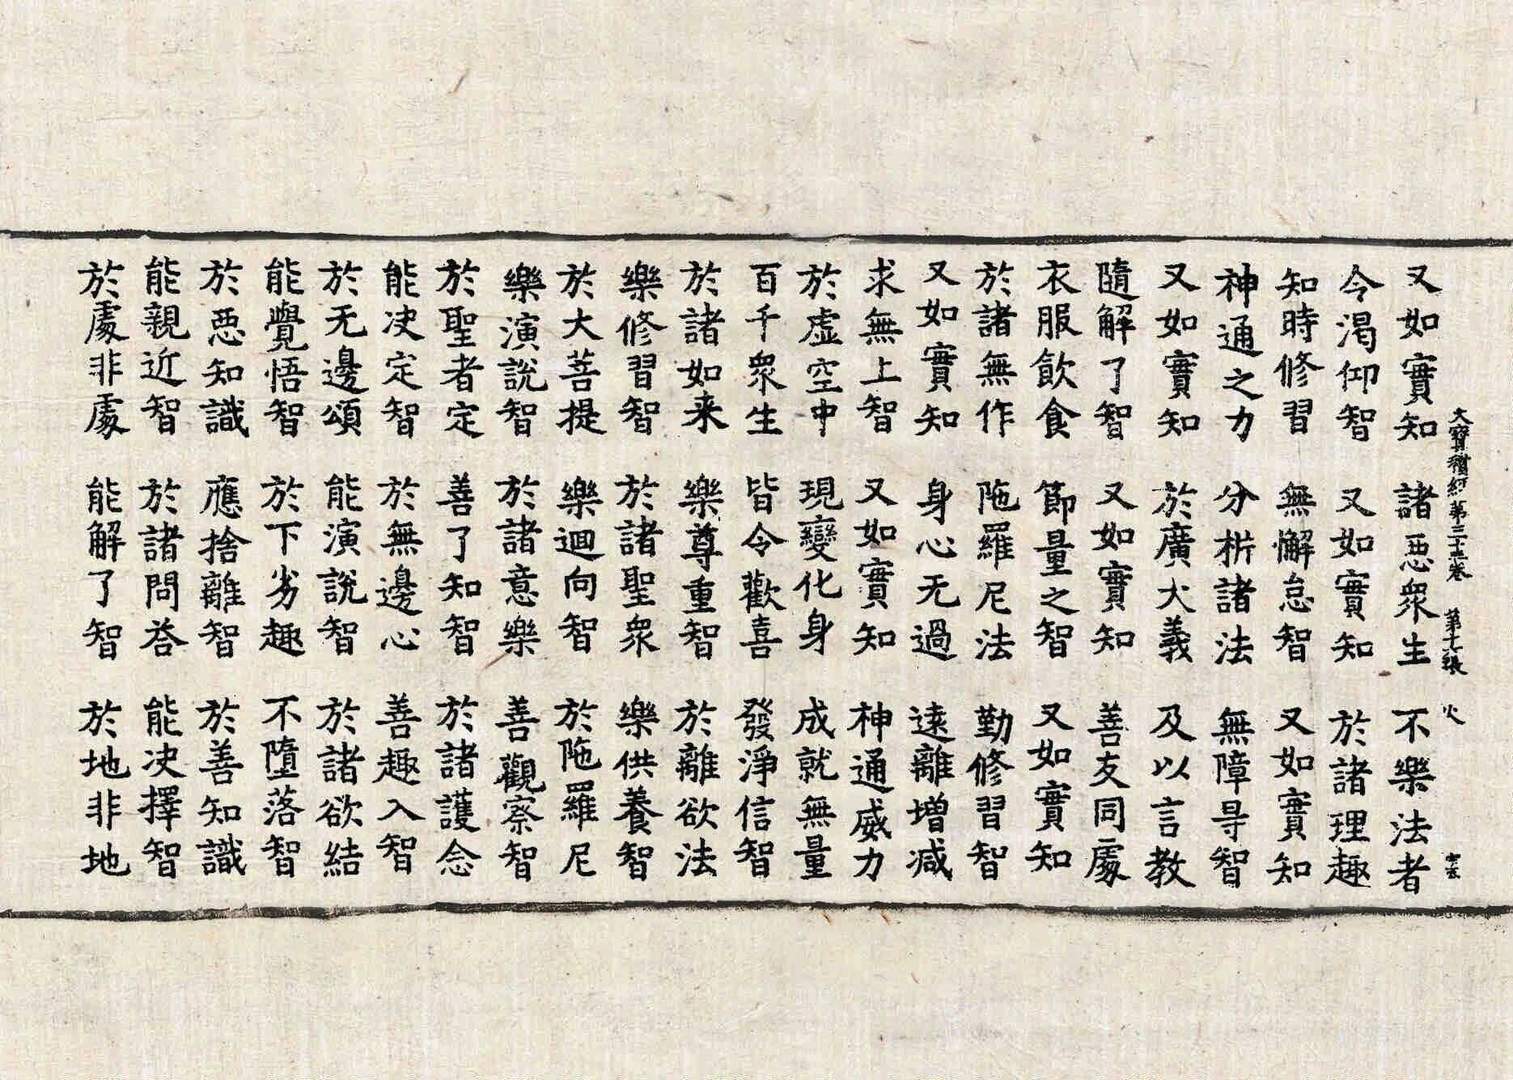 大寶積經第三十六卷 第十七張 火
又如實知 諸惡衆生 不樂法者
令渇仰智 又如實知 於諸理趣
知時修習 無懈怠智 又如實知
神通之力 分析諸法 無障㝵智
又如實知 於廣大義 及以言教
隨解了智 又如實知 善友同處
衣服飲食 節量之智 又如實知
於諸無作 陁羅尼法 勤修習智
又如實知 身心无過 遠離增減
求無上智 又如實知 神通威力
於虛空中 現變化身 成就無量
百千衆生 皆令歡喜 發淨信智
於諸如来 樂尊重智 於離欲法
樂修習智 於諸聖衆 樂供養智
於大菩提 樂迴向智 於陁羅尼
樂演說智 於諸意樂 善觀察智
於聖者定 善了知智 於諸護念
能决定智 於無邊心 善趣入智
於无邊頌 能演說智 於諸欲結
能覺悟智 於下劣趣 不墮落智
於惡知識 應捨離智 於善知識
能親近智 於諸問荅 能决擇智
於處非處 能解了智 於地非地